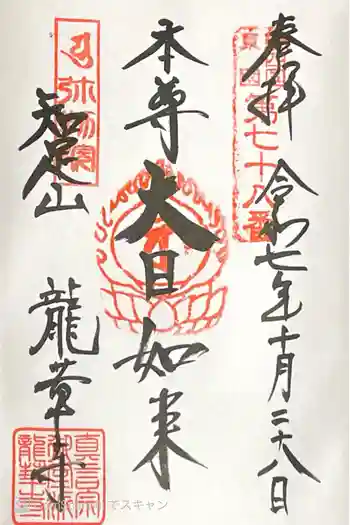 奉拝
令和七年十月二十八日
第七十八番
本尊
大日如来
知足山
龍華寺
弥勒院
真言宗
龍華寺
でスキャン